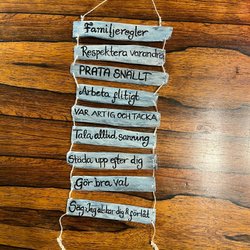 Familjeregler
Respektera varandra
PRATA SNÄLLT
Arbeta flitigt
VAR ARTIG OCH TACKA
Tala alltid sanning
Städa upp efter dig
Gör bra val
Säg Jag älskar dig & förlåt